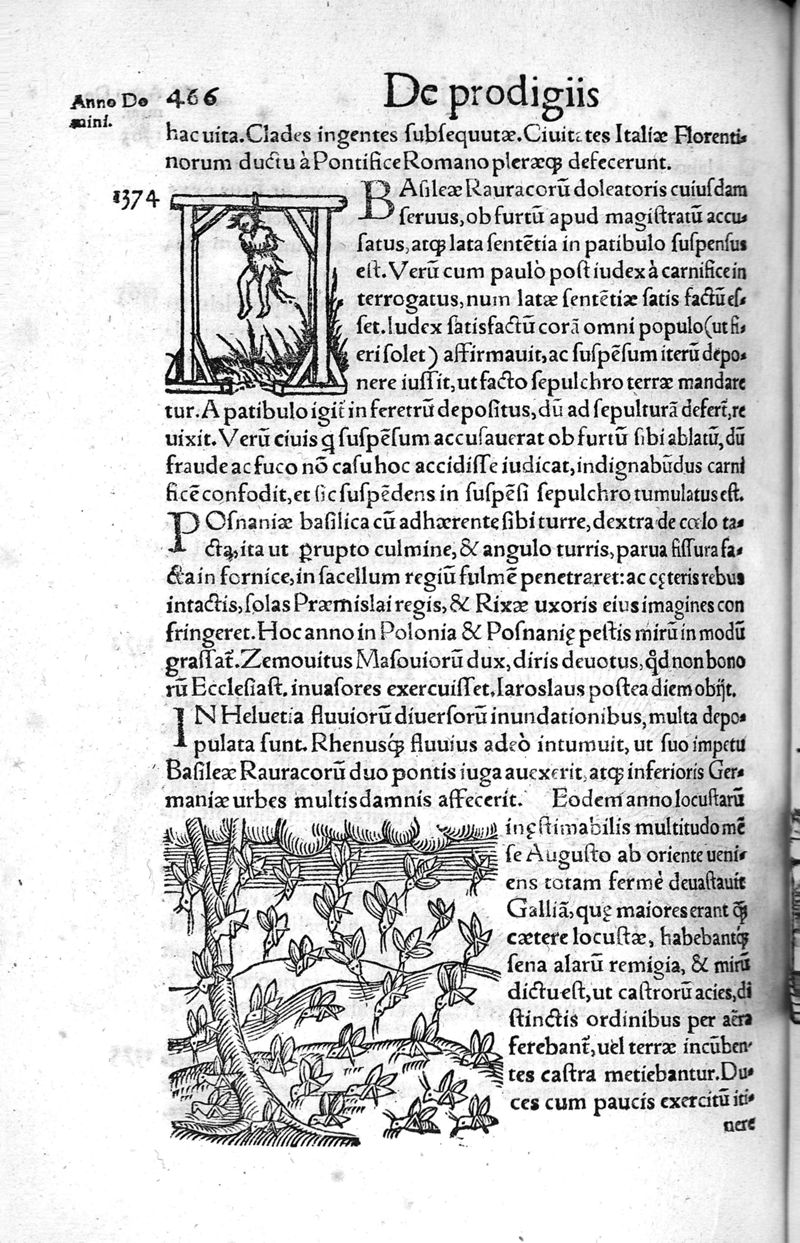 Anno Do 466 De prodigiis
mini.
hac uita. Clades ingentes ſubſequutæ. Ciuitates Italiæ Florenti-
norum ductu à Pontifice Romano pleræq́ defecerunt.
1374
BAſileæ Rauracorū doleatoris cuiuſdam
ſeruus, ob furtū apud magiſtratū accu
ſatus, atq́ lata ſentētia in patibulo ſuſpenſus
eſt. Verū cum paulò poſt iudex à carnifice in
terrogatus, num latæ ſentētiæ ſatis factū eſ-
ſet. Iudex ſatisfactū corā omni populo (ut fi
eri ſolet) affirmauit, ac ſuſpēſum iterū depo-
nere iuſſit, ut facto ſepulchro terræ mandare
tur. A patibulo igit̄ in feretrū depoſitus, dū ad ſepulturā defert̄, re
uixit. Verū ciuis q̄ ſuſpēſum accuſauerat ob furtū ſibi ablatū, dū
fraude ac fuco nō caſu hoc accidiſſe iudicat, indignabūdus carni
ficē confodit, et ſic ſuſpēdens in ſuſpēſi ſepulchro tumulatus eſt.
POſnaniæ baſilica cū adhærente ſibi turre, dextra de cœlo ta-
cta, ita ut p̄rupto culmine, & angulo turris, parua fiſſura fa-
cta in fornice, in ſacellum regiū fulmē penetraret: ac cęteris rebus
intactis, ſolas Præmislai regis, & Rixæ uxoris eius imagines con
fringeret. Hoc anno in Polonia & Poſnanię peſtis mirū in modū
graſſat̄. Zemouitus Maſouiorū dux, diris deuotus, qđ non bono
rū Eccleſiaſt. inuaſores exercuiſſet. Iaroslaus poſtea diem obijt.
IN Heluetia fluuiorū diuerſorū inundationibus, multa depo-
pulata ſunt. Rhenusq́ fluuius adeò intumuit, ut ſuo impetu
Baſileæ Rauracorū duo pontis iuga auexerit, atq́ inferioris Ger-
maniæ urbes multis damnis affecerit. Eodem anno locuſtarū
inęſtimabilis multitudo mē
ſe Auguſto ab oriente ueni-
ens totam fermè deuaſtauit
Galliā, quę maiores erant q̄̃
cætere locuſtæ, habebantq́
ſena alarū remigia, & mirū
dictu eſt, ut caſtrorū acies, di
ſtinctis ordinibus per aëra
ferebant̄, uel terræ incūben-
tes caſtra metiebantur. Du-
ces cum paucis exercitū iti-
nere